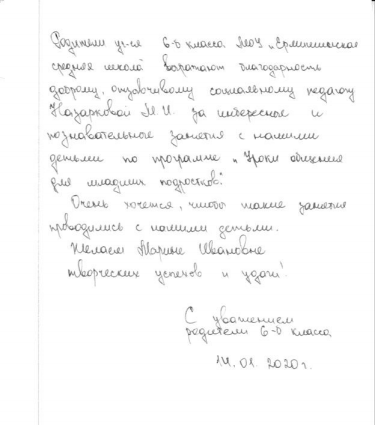 Родители уч-ся 6-б класса МОУ „Ермишинская
средняя школа" выражают благодарность
доброму, отзывчивому социальному педагогу
Назарковой М.И. за интересные и
познавательные занятия с нашими
детьми по программе „Уроки общения
для младших подростков".
Очень хочется, чтобы такие занятия
проводились с нашими детьми.
Желаем Марине Ивановне
творческих успехов и удачи!
С уважением
родители 6-б класса.
14.01.2020г.